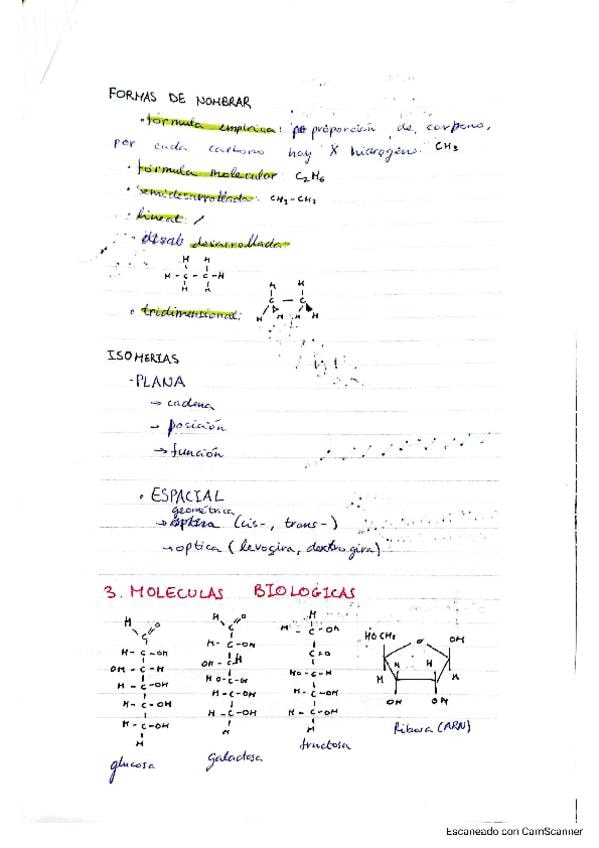 FORMAS DE NOMBRAR
· fórmula empírica: proporción de carbono,
por cada carbono hay X hidrógeno. CH3
· fórmula molecular: C2H6
· semidesarrollada: CH3-CH3
· lineal: /
desarrollada:
H H
H - C - C - H
H H
H H
C — C
· tridimensional:
H H H H
ISOMERIAS
- PLANA
→ cadena
→ posición
→ función
· ESPACIAL
geométrica
→ (cis-, trans-)
→ optica (levogira, dextrogira)
3. MOLECULAS BIOLOGICAS
H O
C
H - C - OH
OH - C - H
H - C - OH
H - C - OH
H - C - OH
H
glucosa
H O
C
H - C - OH
OH - C - H
HO - C - H
H - C - OH
H - C - OH
H
galactosa
H
H - C - OH
C = O
HO - C - H
H - C - OH
H - C - OH
H
fructosa
HO CH2 O OH
H H H H
OH OH
Ribosa (ARN)
Escaneado con CamScanner